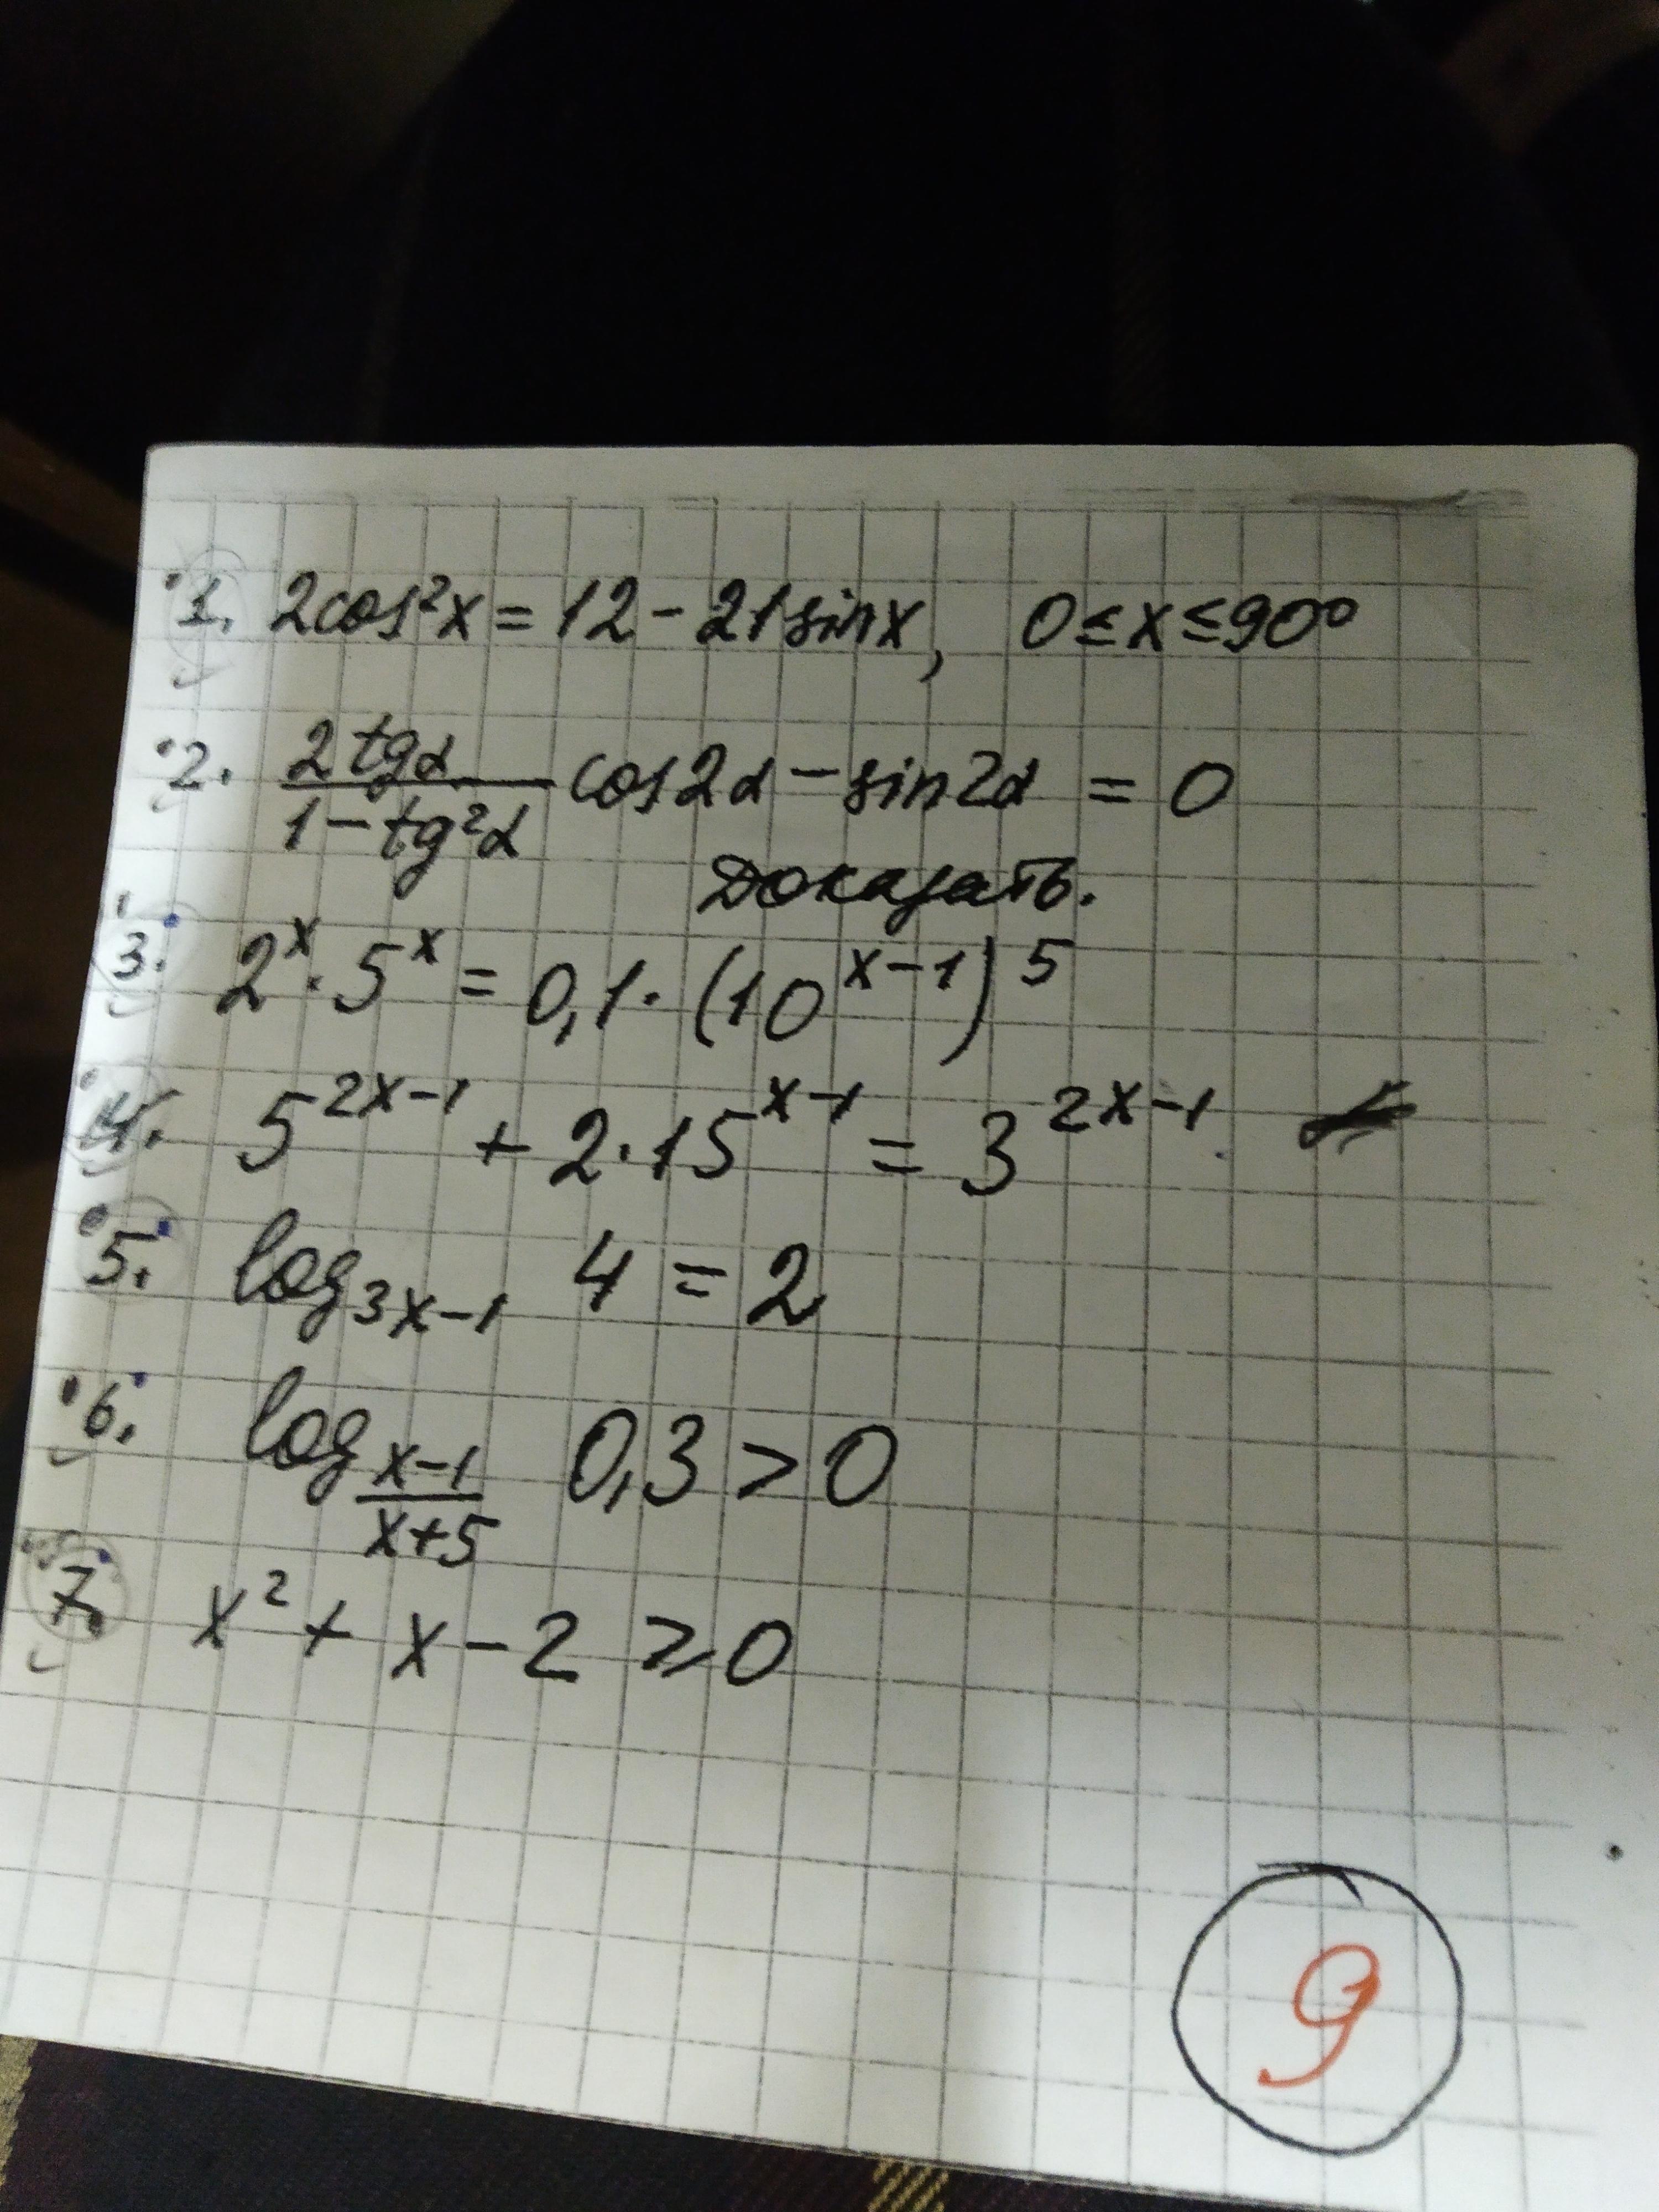 1. 2cos²x = 12 - 21sinx, 0 ≤ x ≤ 90°
2. 2tgα/(1 - tg²α) cos2α - sin2α = 0
Доказать.
3. 2^x · 5^x = 0,1 · (10^(x-1))^5
4. 5^(2x-1) + 2 · 15^(x-1) = 3^(2x-1)
5. log_(3x-1) 4 = 2
6. log_((x-1)/(x+5)) 0,3 > 0
7. x² + x - 2 ≥ 0
9